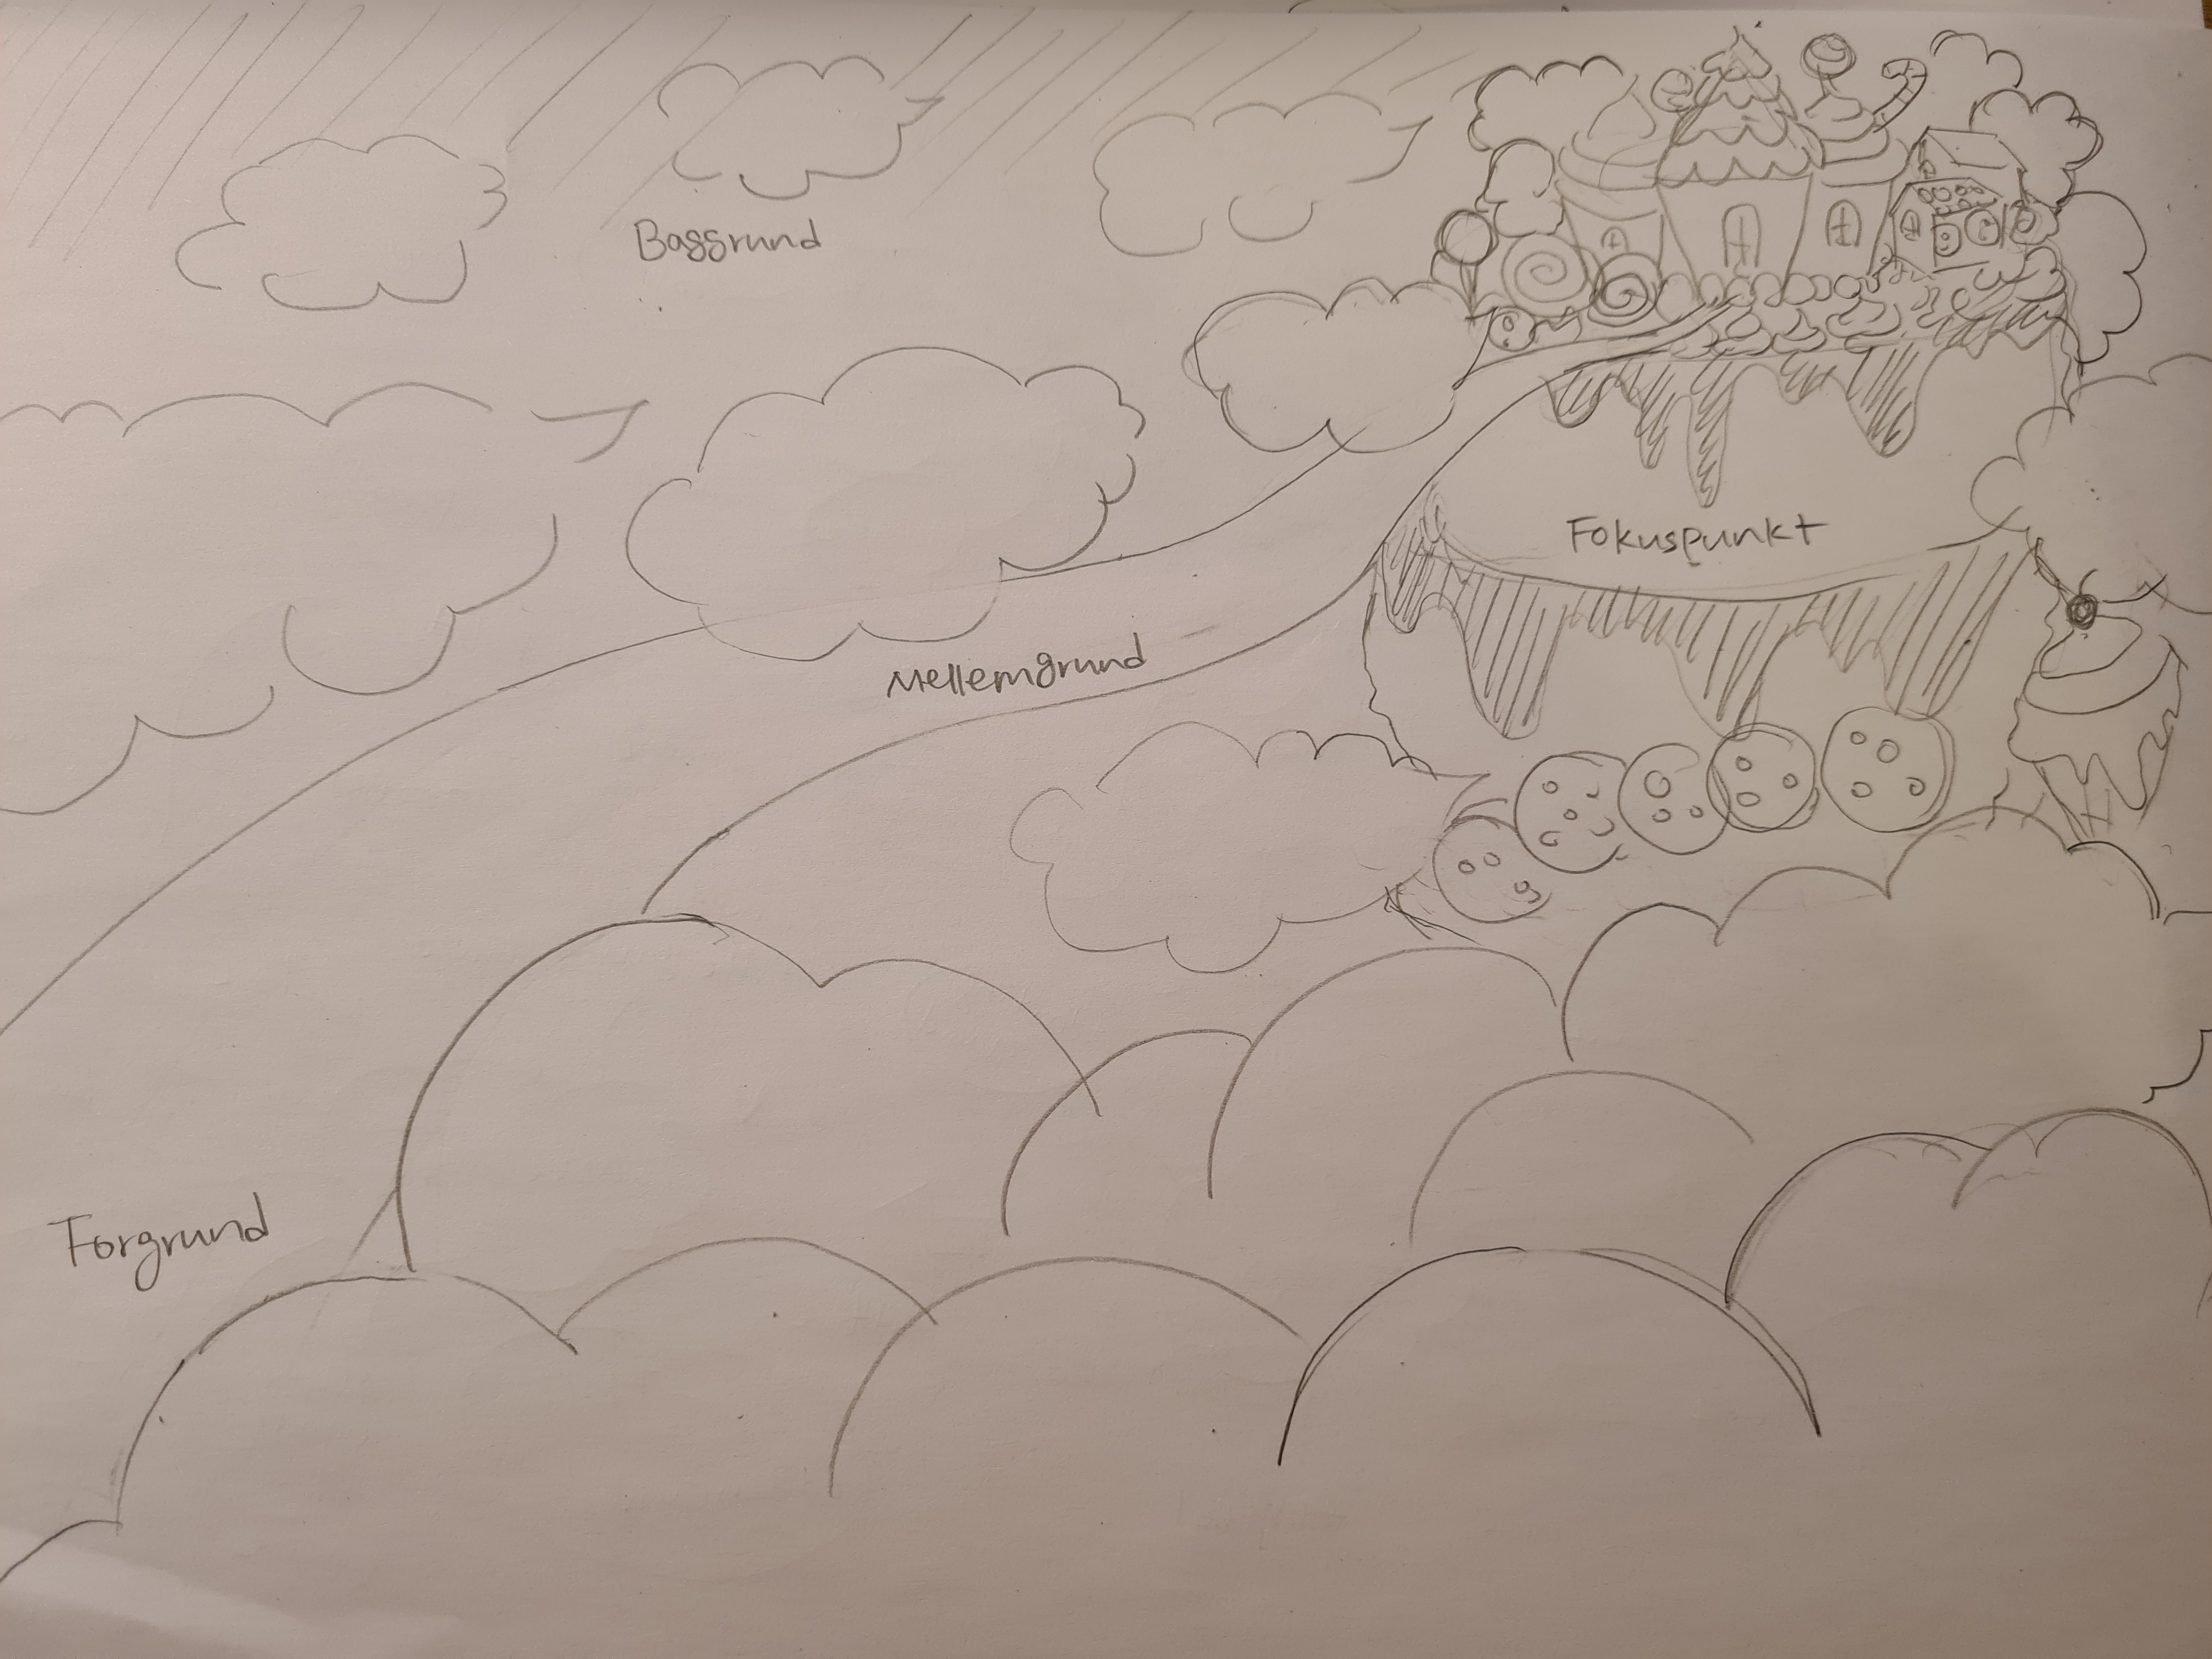 Baggrund
Fokuspunkt
Mellemgrund
Forgrund